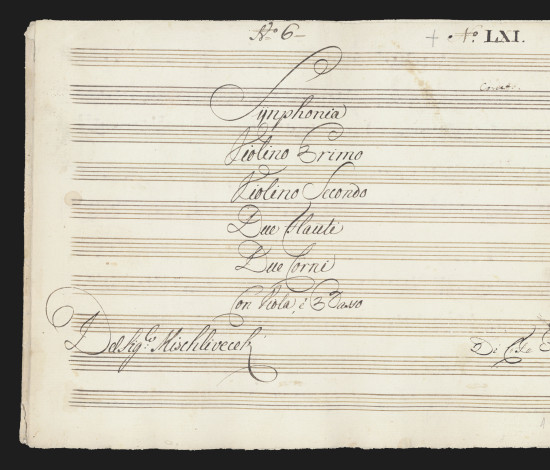 No. 6 –
No. LXI.
Synphonia
Violino Primo
Violino Secondo
Due Flauti
Due Corni
Con Viola, è Basso
Del Sigre. Mischlivecek
Di